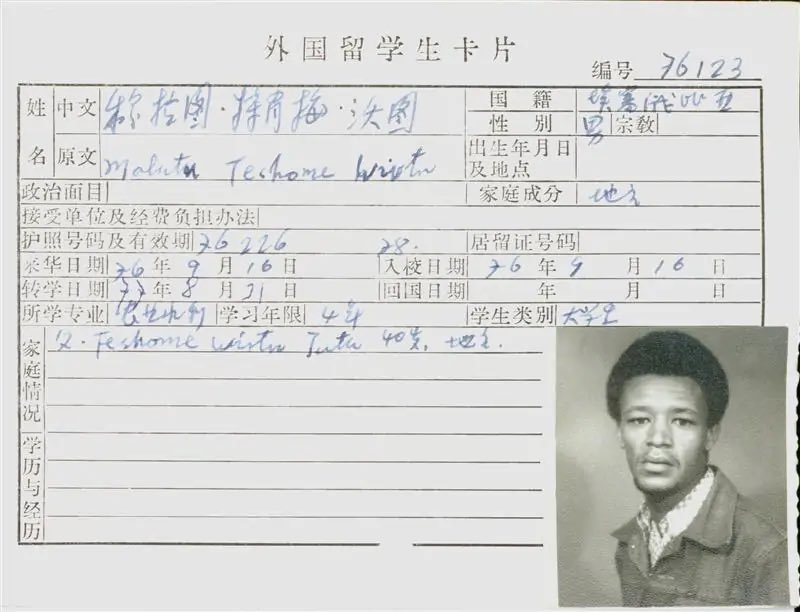 外国留学生卡片
编号 76123
姓名 中文 穆拉图·特肖梅·沃图 国籍 埃塞俄比亚
性别 男 宗教
原文 Malatu Teshome Wirtu 出生年月日及地点
政治面目 家庭成分 地主
接受单位及经费负担办法
护照号码及有效期 76226 78. 居留证号码
来华日期 76年9月16日 入校日期 76年9月16日
转学日期 77年8月31日 回国日期 年 月 日
所学专业 农业水利 学习年限 4年 学生类别 大学生
家庭情况 父·Teshome Wirtu Tutu 40岁, 地主.
学历与经历